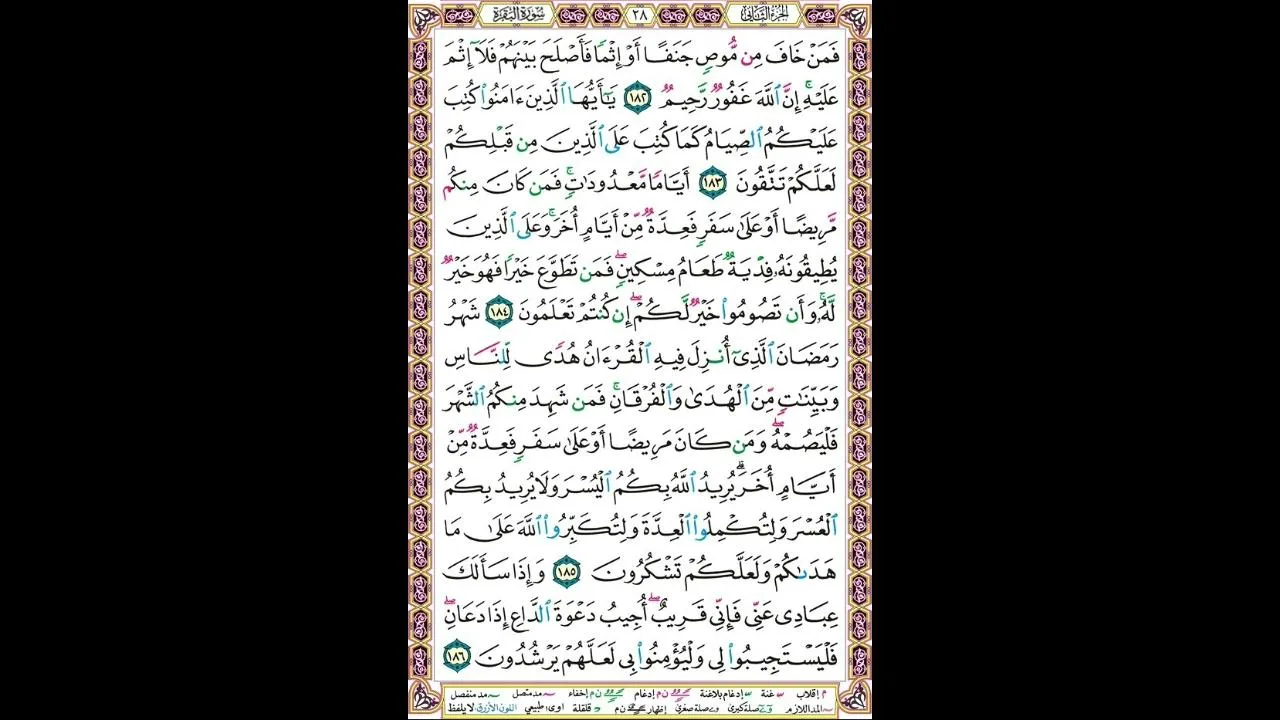 الجزء الثاني
٢٨
سورة البقرة
فَمَنْ خَافَ مِن مُّوصٍ جَنَفًا أَوْ إِثْمًا فَأَصْلَحَ بَيْنَهُمْ فَلَآ إِثْمَ
عَلَيْهِۚ إِنَّ ٱللَّهَ غَفُورٌ رَّحِيمٌ ١٨٢ يَٰٓأَيُّهَا ٱلَّذِينَ ءَامَنُوا۟ كُتِبَ
عَلَيْكُمُ ٱلصِّيَامُ كَمَا كُتِبَ عَلَى ٱلَّذِينَ مِن قَبْلِكُمْ
لَعَلَّكُمْ تَتَّقُونَ ١٨٣ أَيَّامًا مَّعْدُودَٰتٍۚ فَمَن كَانَ مِنكُم
مَّرِيضًا أَوْ عَلَىٰ سَفَرٍ فَعِدَّةٌ مِّنْ أَيَّامٍ أُخَرَۚ وَعَلَى ٱلَّذِينَ
يُطِيقُونَهُۥ فِدْيَةٌ طَعَامُ مِسْكِينٍۖ فَمَن تَطَوَّعَ خَيْرًا فَهُوَ خَيْرٌ
لَّهُۥۚ وَأَن تَصُومُوا۟ خَيْرٌ لَّكُمْۖ إِن كُنتُمْ تَعْلَمُونَ ١٨٤ شَهْرُ
رَمَضَانَ ٱلَّذِىٓ أُنزِلَ فِيهِ ٱلْقُرْءَانُ هُدًى لِّلنَّاسِ
وَبَيِّنَٰتٍ مِّنَ ٱلْهُدَىٰ وَٱلْفُرْقَانِۚ فَمَن شَهِدَ مِنكُمُ ٱلشَّهْرَ
فَلْيَصُمْهُۖ وَمَن كَانَ مَرِيضًا أَوْ عَلَىٰ سَفَرٍ فَعِدَّةٌ مِّنْ
أَيَّامٍ أُخَرَۗ يُرِيدُ ٱللَّهُ بِكُمُ ٱلْيُسْرَ وَلَا يُرِيدُ بِكُمُ
ٱلْعُسْرَ وَلِتُكْمِلُوا۟ ٱلْعِدَّةَ وَلِتُكَبِّرُوا۟ ٱللَّهَ عَلَىٰ مَا
هَدَىٰكُمْ وَلَعَلَّكُمْ تَشْكُرُونَ ١٨٥ وَإِذَا سَأَلَكَ
عِبَادِى عَنِّى فَإِنِّى قَرِيبٌۖ أُجِيبُ دَعْوَةَ ٱلدَّاعِ إِذَا دَعَانِۖ
فَلْيَسْتَجِيبُوا۟ لِى وَلْيُؤْمِنُوا۟ بِى لَعَلَّهُمْ يَرْشُدُونَ ١٨٦
م إقلاب غنة إدغام بلاغنة ن م إدغام ن م إخفاء مد متصل مد منفصل
المد اللازم صلة كبرى صلة صغرى إظهار ن م قلقلة اوى: طبيعي اللون الأزرق لا يلفظ